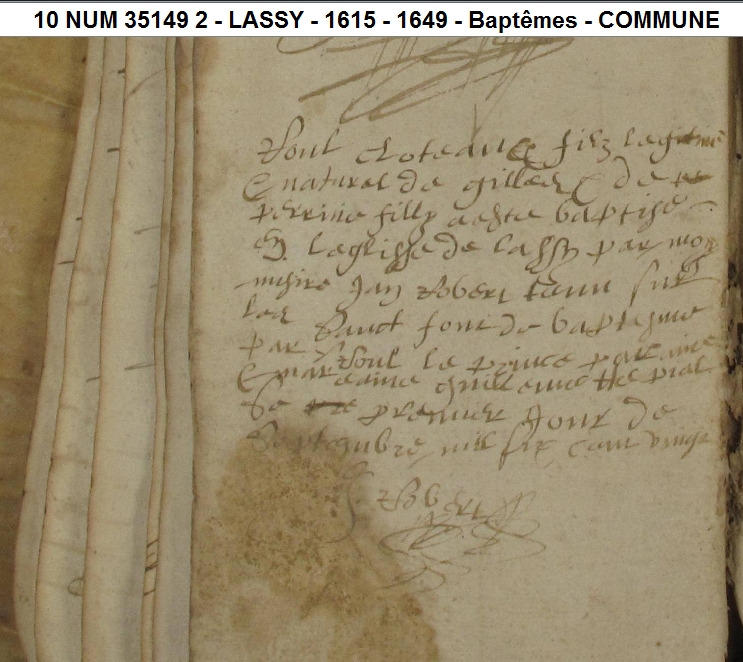 10 NUM 35149 2 - LASSY - 1615 - 1649 - Baptêmes - COMMUNE
Roul cloteaux filz legitime
& naturel de gilles & de
perrine filly a este baptise
en leglisse de lassy par mon
misire Jan Robert tenu sur
les sainct font de baptesme
par Roul le prince parain
& mar raine guillemette
le premier jour de
Septembre mil six cent vingt
J. Robert